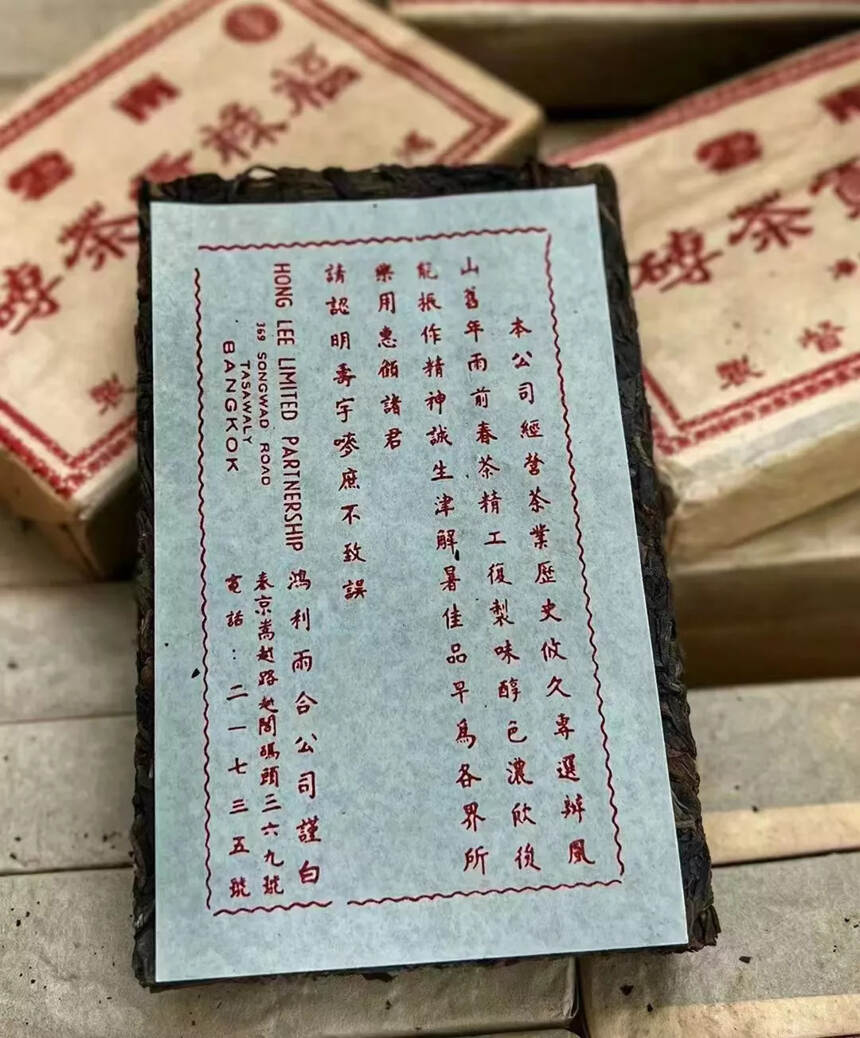 本公司經營茶業歷史攸久專選辦鳳
山舊年雨前春茶精工復製味醇色濃飲後
能振作精神誠生津解暑佳品早為各界所
樂用惠顧諸君
請認明壽字嘜庶不致誤
HONG LEE LIMITED PARTNERSHIP
369 SONGWAD ROAD
TASAWALY
BANGKOK
鴻利兩合公司謹白
泰京嵩越路越閣碼頭三六九號
電話：二一七三五號
雲南
福祿貢茶磚
製
雲南
貢茶磚
督製